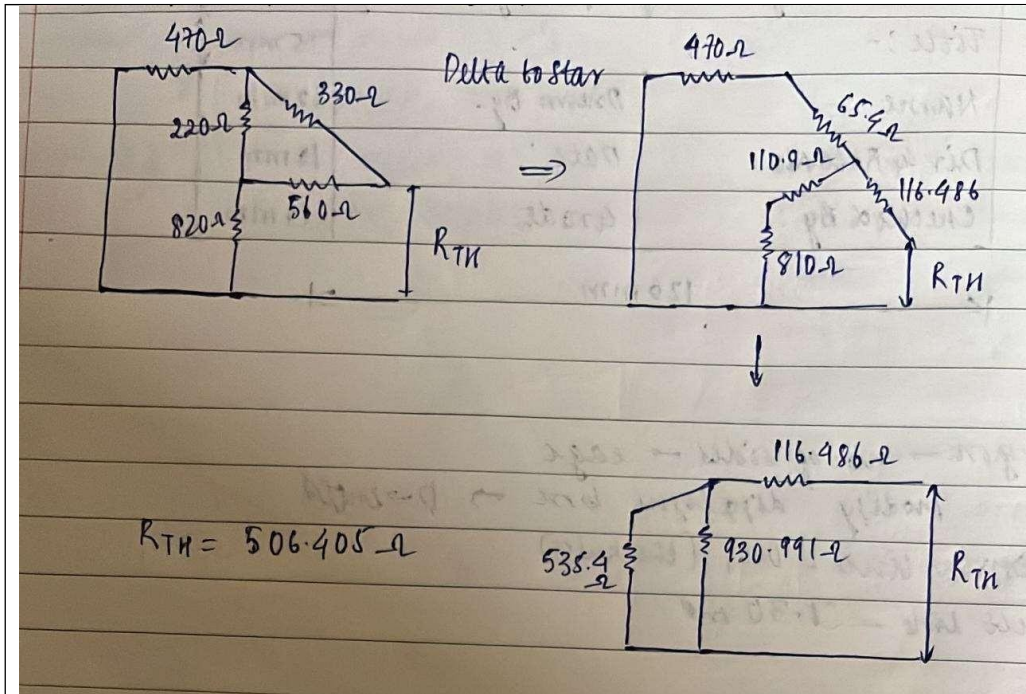 470Ω
330Ω
220Ω
560Ω
820Ω
RTH
Delta to star
⇒
470Ω
65.4Ω
110.9Ω
116.486
810Ω
RTH
116.486Ω
535.4Ω
930.991Ω
RTH
RTH = 506.405Ω